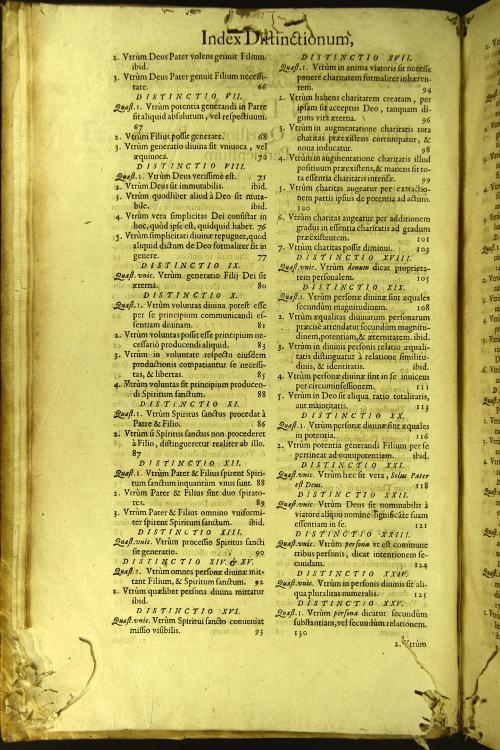 Index Distinctionum,
2. Vtrùm Deus Pater volens genuit Filium.
ibid.
3. Vtrùm Deus Pater genuit Filium necessi-
tate. 66
DISTINCTIO VII.
Quæst. 1. Vtrùm potentia generandi in Patre
sit aliquid absolutum, vel respectiuum.
67
2. Vtrùm Filius possit generare. 68
3. Vtrùm generatio diuina sit vniuoca, vel
æquiuoca. 70
DISTINCTIO VIII.
Quæst. 1. Vtrùm Deus verissimè est. 71
2. Vtrùm Deus sit immutabilis. ibid.
3. Vtrùm quodlibet aliud à Deo sit muta-
bile. ibid.
4. Vtrùm vera simplicitas Dei consistat in
hoc, quòd ipse est, quidquid habet. 76
5. Vtrùm simplicitati diuinæ repugnet, quod
aliquid dictum de Deo formaliter sit in
genere. 77
DISTINCTIO IX.
Quæst. vnic. Vtrùm generatio Filij Dei sit
æterna. 80
DISTINCTIO X.
Quæst. 1. Vtrùm voluntas diuina potest esse
per se principium communicandi es-
sentiam diuinam. 81
2. Vtrùm voluntas possit esse principium ne-
cessariò producendi aliquid. 83
3. Vtrùm in voluntate respectu eiusdem
productionis compatiantur se necessi-
tas, & libertas. 85
4. Vtrùm voluntas sit principium producen-
di Spiritum sanctum. 88
DISTINCTIO XI.
Quæst. 1. Vtrùm Spiritus sanctus procedat à
Patre & Filio. 86
2. Vtrùm si Spiritus sanctus non procederet
à Filio, distingueretur realiter ab illo.
87
DISTINCTIO XII.
Quæst. 1. Vtrùm Pater & Filius spirent Spiri-
tum sanctum inquantùm vnus sunt. 88
2. Vtrùm Pater & Filius sint duo spirato-
res. 89
3. Vtrùm Pater & Filius omnino vniformi-
ter spirent Spiritum sanctum. ibid.
DISTINCTIO XIII.
Quæst. vnic. Vtrùm processio Spiritus sancti
sit generatio. 90
DISTINCTIO XIV. & XV.
Quæst. 1. Vtrùm omnes personæ diuinæ mit-
tant Filium, & Spiritum sanctum. 92
2. Vtrùm quælibet persona diuina mittatur
ibid.
DISTINCTIO XVI.
Quæst. vnic. Vtrùm Spiritui sancto conueniat
missio visibilis. 93
DISTINCTIO XVII.
Quæst. 1. Vtrùm in anima viatoris sit necesse
ponere charitatem formaliter inhæren-
tem. 94
2. Vtrùm habens charitatem creatam, per
ipsam sit acceptus Deo, tanquam di-
gnus vita æterna. 96
3. Vtrùm in augmentatione charitatis tota
charitas præexistens corrumpatur, &
noua inducatur. 98
4. Vtrùm in augmentatione charitatis illud
positiuum præexistens, & manens sit to-
ta essentia charitatis intensæ. 99
5. Vtrùm charitas augeatur per extractio-
nem partis ipsius de potentia ad actum.
100
6. Vtrùm charitas augeatur per additionem
gradus in essentia charitatis ad gradum
præexistentem. 101
7. Vtrùm charitas possit diminui. 103
DISTINCTIO XVIII.
Quæst. vnic. Vtrùm donum dicat proprieta-
tem personalem. 105
DISTINCTIO XIX.
Quæst. 1. Vtrùm personæ diuinæ sint æquales
secundùm magnitudinem. 108
2. Vtrùm æqualitas diuinarum personarum
præcisè attendatur secundùm magnitu-
dinem, potentiam, & æternitatem. ibid.
3. Vtrùm in diuinis personis relatio æquali-
tatis distinguatur à relatione similitu-
dinis, & identitatis. ibid.
4. Vtrùm personæ diuinæ sint in se inuicem
per circuminsessionem. 111
5. Vtrùm in Deo sit aliqua ratio totalitatis,
aut maioritatis. 113
DISTINCTIO XX.
Quæst. 1. Vtrùm personæ diuinæ sint æquales
in potentia. 116
2. Vtrùm potentia generandi Filium per se
pertineat ad omnipotentiam. ibid.
DISTINCTIO XXI.
Quæst. vnic. Vtrùm hæc sit vera, Solus Pater
est Deus. 118
DISTINCTIO XXII.
Quæst. vnic. Vtrùm Deus sit nominabilis à
viatore aliquo nomine significante suam
essentiam in se. 121
DISTINCTIO XXIII.
Quæst. vnic. Vtrùm persona vt est commune
tribus personis, dicat intentionem se-
cundam. 124
DISTINCTIO XXIV.
Quæst. vnic. Vtrùm in personis diuinis sit ali-
qua pluralitas numeralis. 125
DISTINCTIO XXV.
Quæst. 1. Vtrùm persona dicatur secundùm
substantiam, vel secundùm relationem.
130
2. Vtrùm